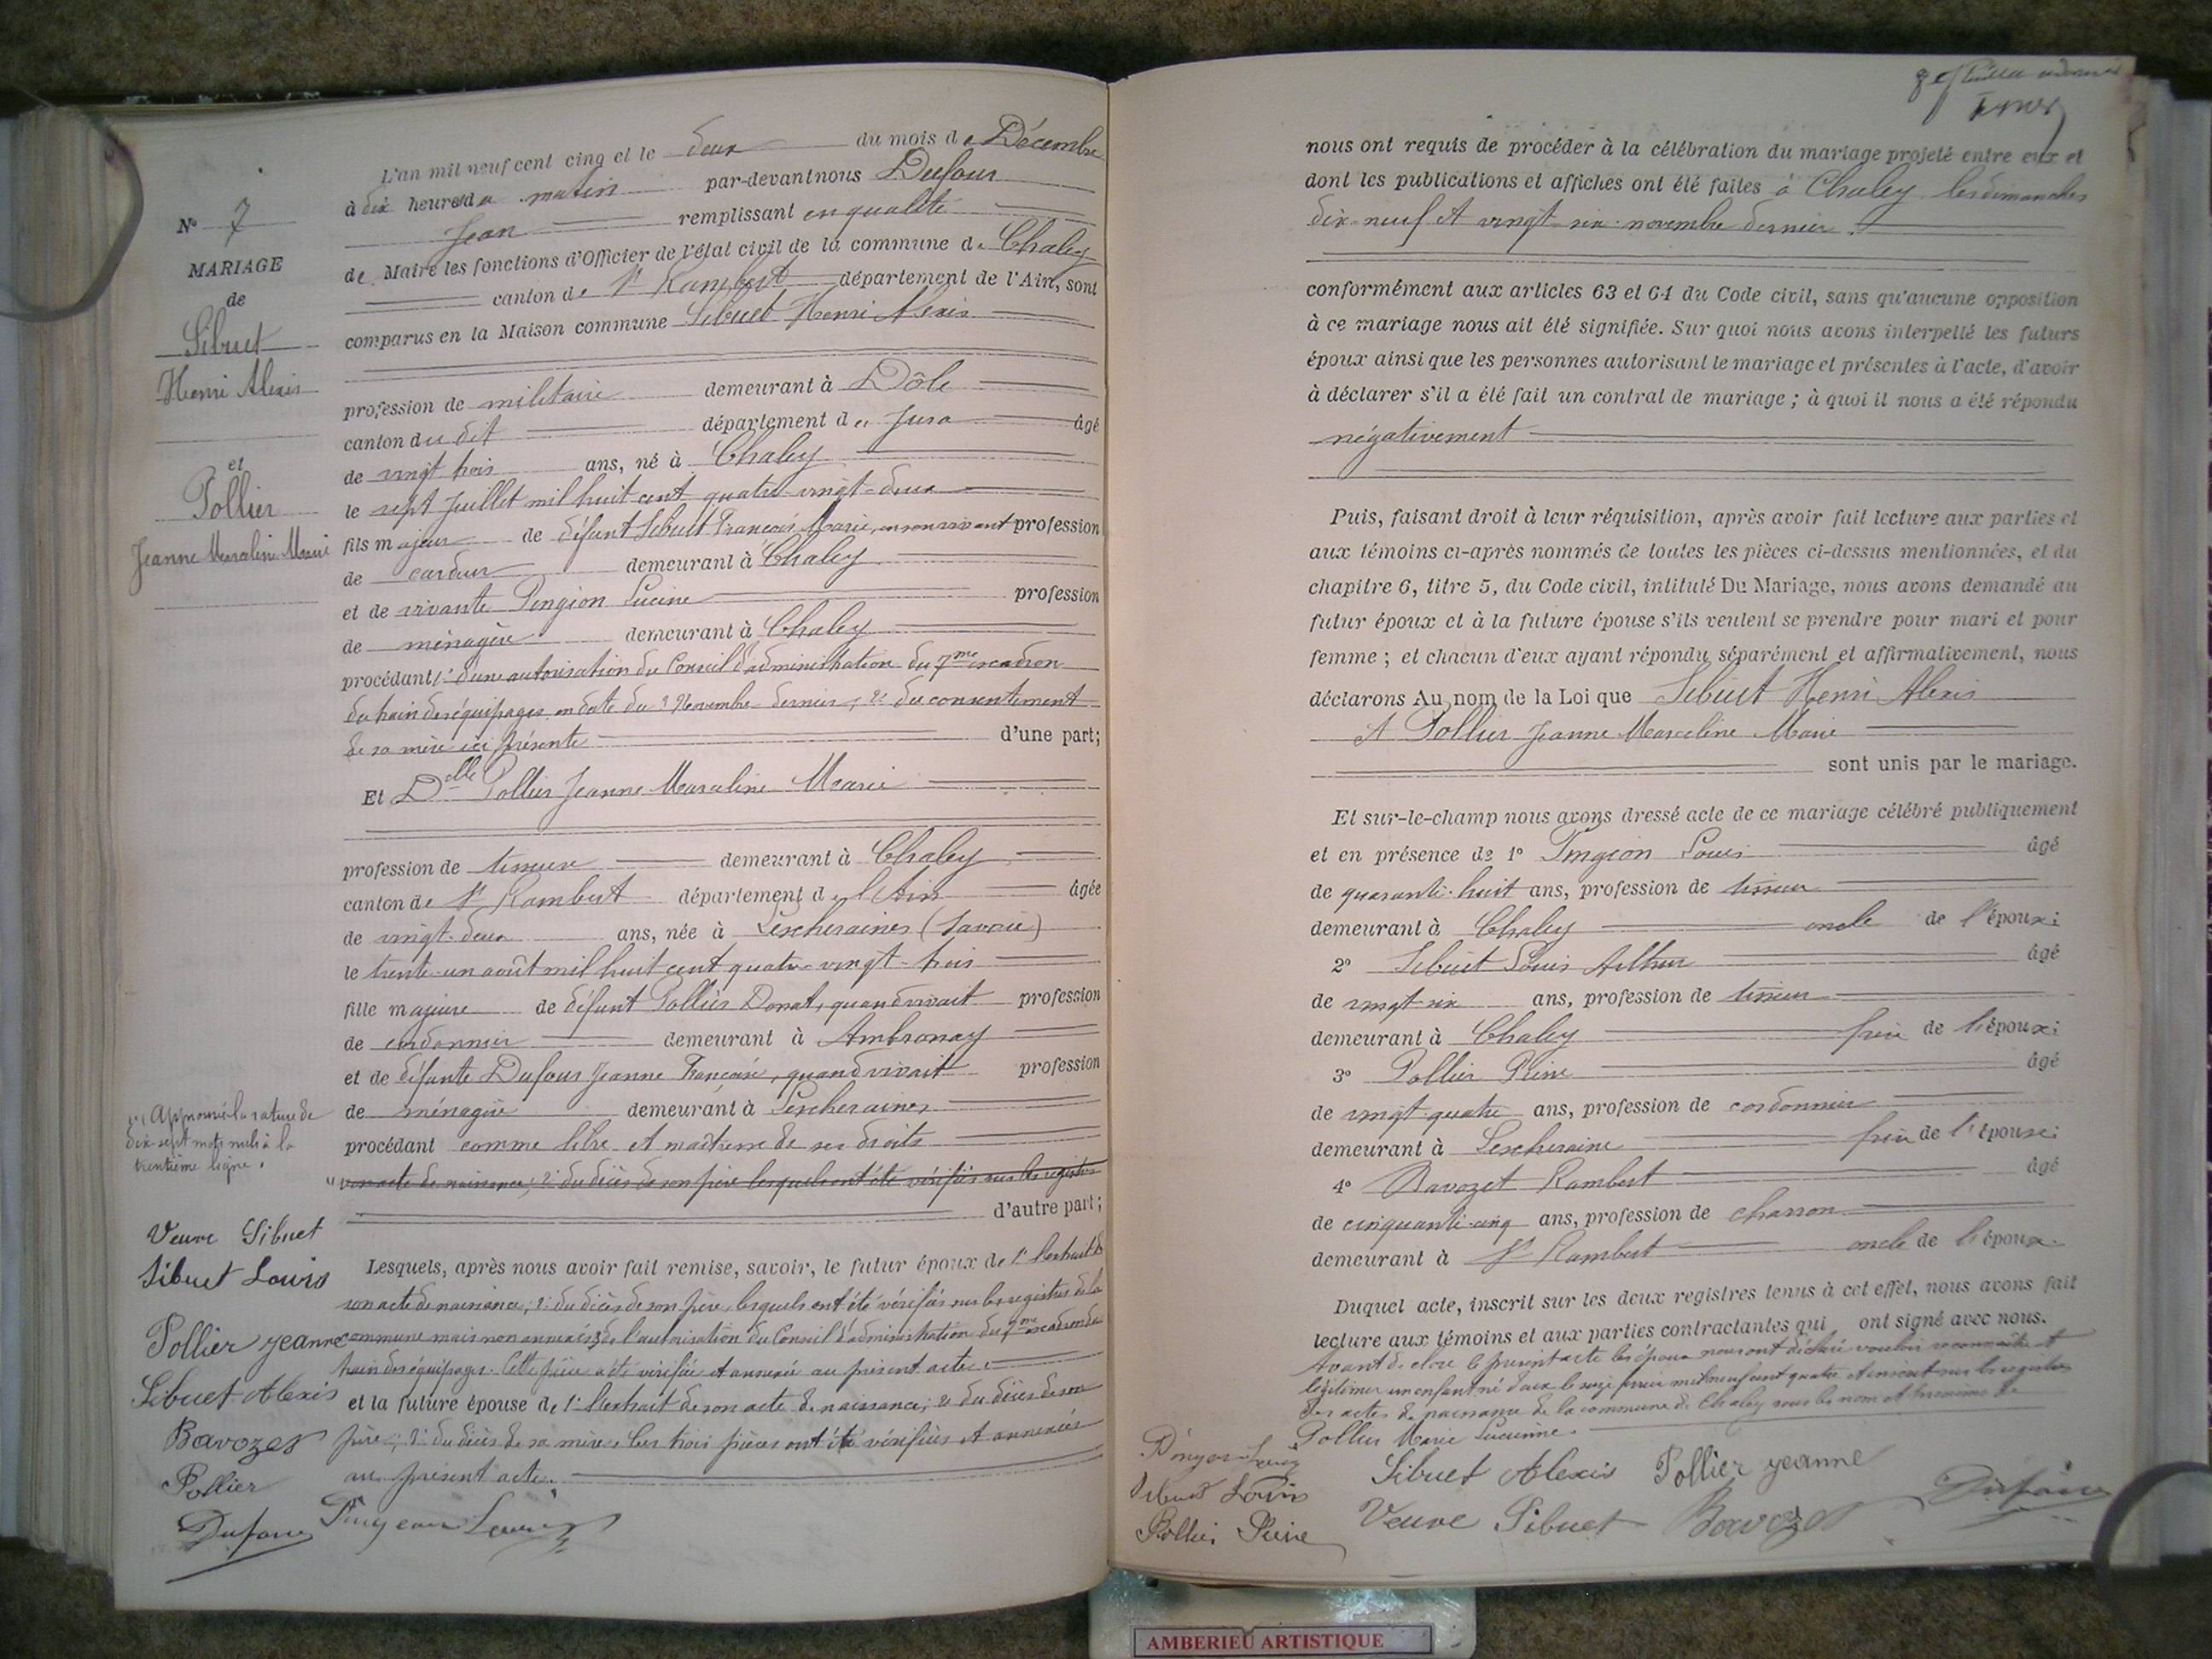 N° 7
MARIAGE
de
Sibuet
Henri Alexis
et
Pollier
Jeanne Marceline Marie
L'an mil neuf cent cinq et le deux du mois de Décembre
à dix heures du matin par-devant nous Dufour
Jean remplissant en qualité
de Maire les fonctions d'Officier de l'état civil de la commune de Chaley
canton de St Rambert département de l'Ain, sont
comparus en la Maison commune Sibuet Henri Alexis
profession de militaire demeurant à Dôle
canton du dit département du Jura âgé
de vingt trois ans, né à Chaley
le sept Juillet mil huit cent quatre-vingt-deux
fils majeur de défunt Sibuet François Marie, en son vivant profession
de cardeur demeurant à Chaley
et de vivante Pingeon Lucine profession
de ménagère demeurant à Chaley
procédant 1° d'une autorisation du Conseil d'administration du 7me escadron
du train des équipages en date du 2 Novembre dernier, 2° du consentement
de sa mère ici présente d'une part;
Et Delle Pollier Jeanne Marceline Marie
profession de tisseuse demeurant à Chaley
canton de St Rambert département de l'Ain âgée
de vingt-deux ans, née à Lescheraines (Savoie)
le trente-un août mil huit cent quatre-vingt-trois
fille majeure de défunt Pollier Donat, quand vivait profession
de cordonnier demeurant à Ambronay
et de défunte Dufour Jeanne Françoise, quand vivait profession
de ménagère demeurant à Lescheraines
procédant comme libre et maîtresse de ses droits
son acte de naissance; 2° du décès de son père lesquels ont été vérifiés sur les registres
d'autre part;
Approuvé la rature de
dix sept mots nuls à la
trentième ligne.
Lesquels, après nous avoir fait remise, savoir, le futur époux de 1° l'extrait de
son acte de naissance; 2° du décès de son père, lesquels ont été vérifiés sur les registres de la
commune mais non annexés; 3° de l'autorisation du Conseil d'administration du 7me escadron du
train des équipages. Cette pièce a été vérifiée et annexée au présent acte.
et la future épouse de 1° l'extrait de son acte de naissance; 2° du décès de son
père; 3° du décès de sa mère. Les trois pièces ont été vérifiées et annexées
au présent acte.
Veuve Sibuet
Sibuet Louis
Pollier jeanne
Sibuet Alexis
Bavozet
Pollier
Dufour Pingeon Louis
nous ont requis de procéder à la célébration du mariage projeté entre eux et
dont les publications et affiches ont été faites à Chaley les dimanches
dix-neuf et vingt-six novembre dernier.
conformément aux articles 63 et 64 du Code civil, sans qu'aucune opposition
à ce mariage nous ait été signifiée. Sur quoi nous avons interpellé les futurs
époux ainsi que les personnes autorisant le mariage et présentes à l'acte, d'avoir
à déclarer s'il a été fait un contrat de mariage; à quoi il nous a été répondu
négativement
Puis, faisant droit à leur réquisition, après avoir fait lecture aux parties et
aux témoins ci-après nommés de toutes les pièces ci-dessus mentionnées, et du
chapitre 6, titre 5, du Code civil, intitulé Du Mariage, nous avons demandé au
futur époux et à la future épouse s'ils veulent se prendre pour mari et pour
femme; et chacun d'eux ayant répondu séparément et affirmativement, nous
déclarons Au nom de la Loi que Sibuet Henri Alexis
et Pollier Jeanne Marceline Marie
sont unis par le mariage.
Et sur-le-champ nous avons dressé acte de ce mariage célébré publiquement
et en présence de 1° Pingeon Louis âgé
de quarante-huit ans, profession de tisseur
demeurant à Chaley oncle de l'époux;
2° Sibuet Louis Arthur âgé
de vingt-six ans, profession de tisseur
demeurant à Chaley frère de l'époux;
3° Pollier Pierre âgé
de vingt-quatre ans, profession de cordonnier
demeurant à Lescheraine frère de l'épouse;
4° Bavozet Rambert âgé
de cinquante-cinq ans, profession de charron
demeurant à St Rambert oncle de l'époux.
Duquel acte, inscrit sur les deux registres tenus à cet effet, nous avons fait
lecture aux témoins et aux parties contractantes qui ont signé avec nous.
Avant de clore le présent acte les époux nous ont déclaré vouloir reconnaître et
légitimer un enfant né d'eux le mil neuf cent quatre et inscrit sur les registres
des actes de naissance de la commune de Chaley sous les nom et prénoms de
Pollier Marie Lucienne.
Pingeon Louis
Sibuet Louis
Pollier Pierre
Sibuet Alexis Pollier jeanne
Veuve Sibuet Bavozet Dufour
AMBERIEU ARTISTIQUE